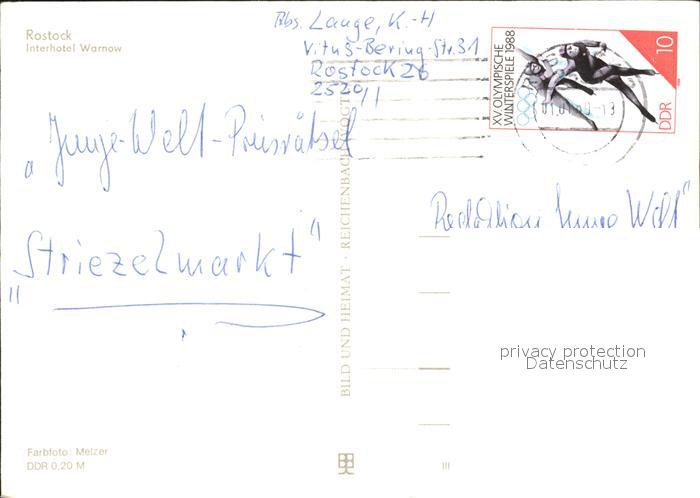 Rostock
Interhotel Warnow
Abs. Lange, K.-H
Vitus-Bering-Str. 31
Rostock 26
2520
XV. OLYMPISCHE
WINTERSPIELE 1988
10
DDR
„Junge-Welt-Preisrätsel
"Striezelmarkt"
Redaktion Junge Welt"
BILD UND HEIMAT · REICHENBACH
privacy protection
Datenschutz
Farbfoto: Melzer
DDR 0,20 M
III